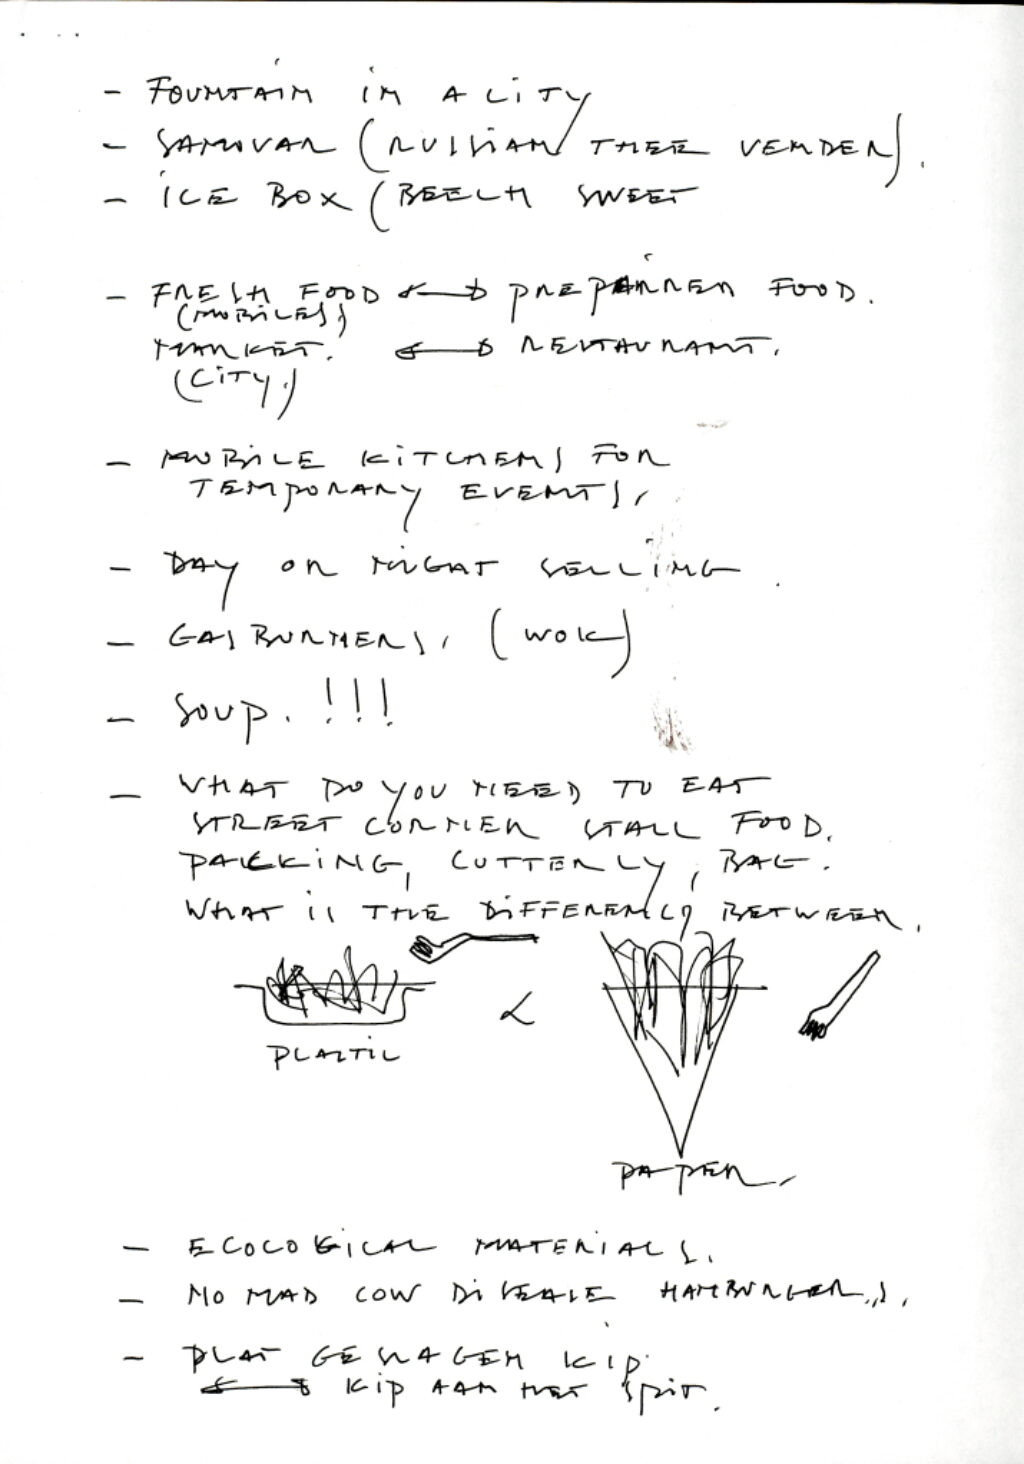 - FOUNTAIN IN A CITY
- SAMOVAR (RUSSIAN THEE VENDER).
- ICE BOX (BEECH SWEET
- FRESH FOOD ↔ PREPAIRREN FOOD.
(MOBILES)
MARKET. ↔ RESTAURANT.
(CITY.)
- MOBILE KITCHENS FOR
TEMPORARY EVENTS.
- DAY OR NIGHT SELLING.
- GASBURNERS. (WOK)
- SOUP. !!!
- WHAT DO YOU NEED TO EAT
STREET CORNER STALL FOOD.
PACKING, CUTTERLY, BAG.
WHAT IS THE DIFFERENCY BETWEEN.
PLASTIC
PAPER.
- ECOCOGICAL MATERIALS.
- NO MAD COW DISEASE HAMBURGERS.
- PLAT GESLAGEN KIP.
↔ KIP AAN HET SPIT.